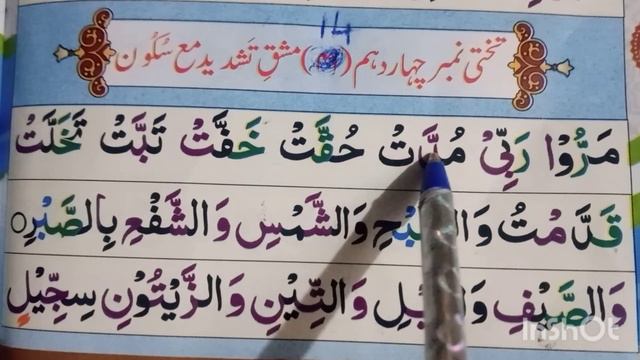 14
تختی نمبر چہار دہم ( ) مشقِ تشدید مع سکون
مَرُّوْا رَبِّیْ مُدَّتْ حُقَّتْ خَفَّتْ تَبَّتْ تَخَلَّتْ
قَدَّمْتُ وَالشَّمْسِ وَالشَّفْعِ بِالصَّبْرِ ○
وَالصَّیْفِ وَالتِّیْنِ وَالزَّیْتُوْنِ سِجِّیْلٍ
InShOt